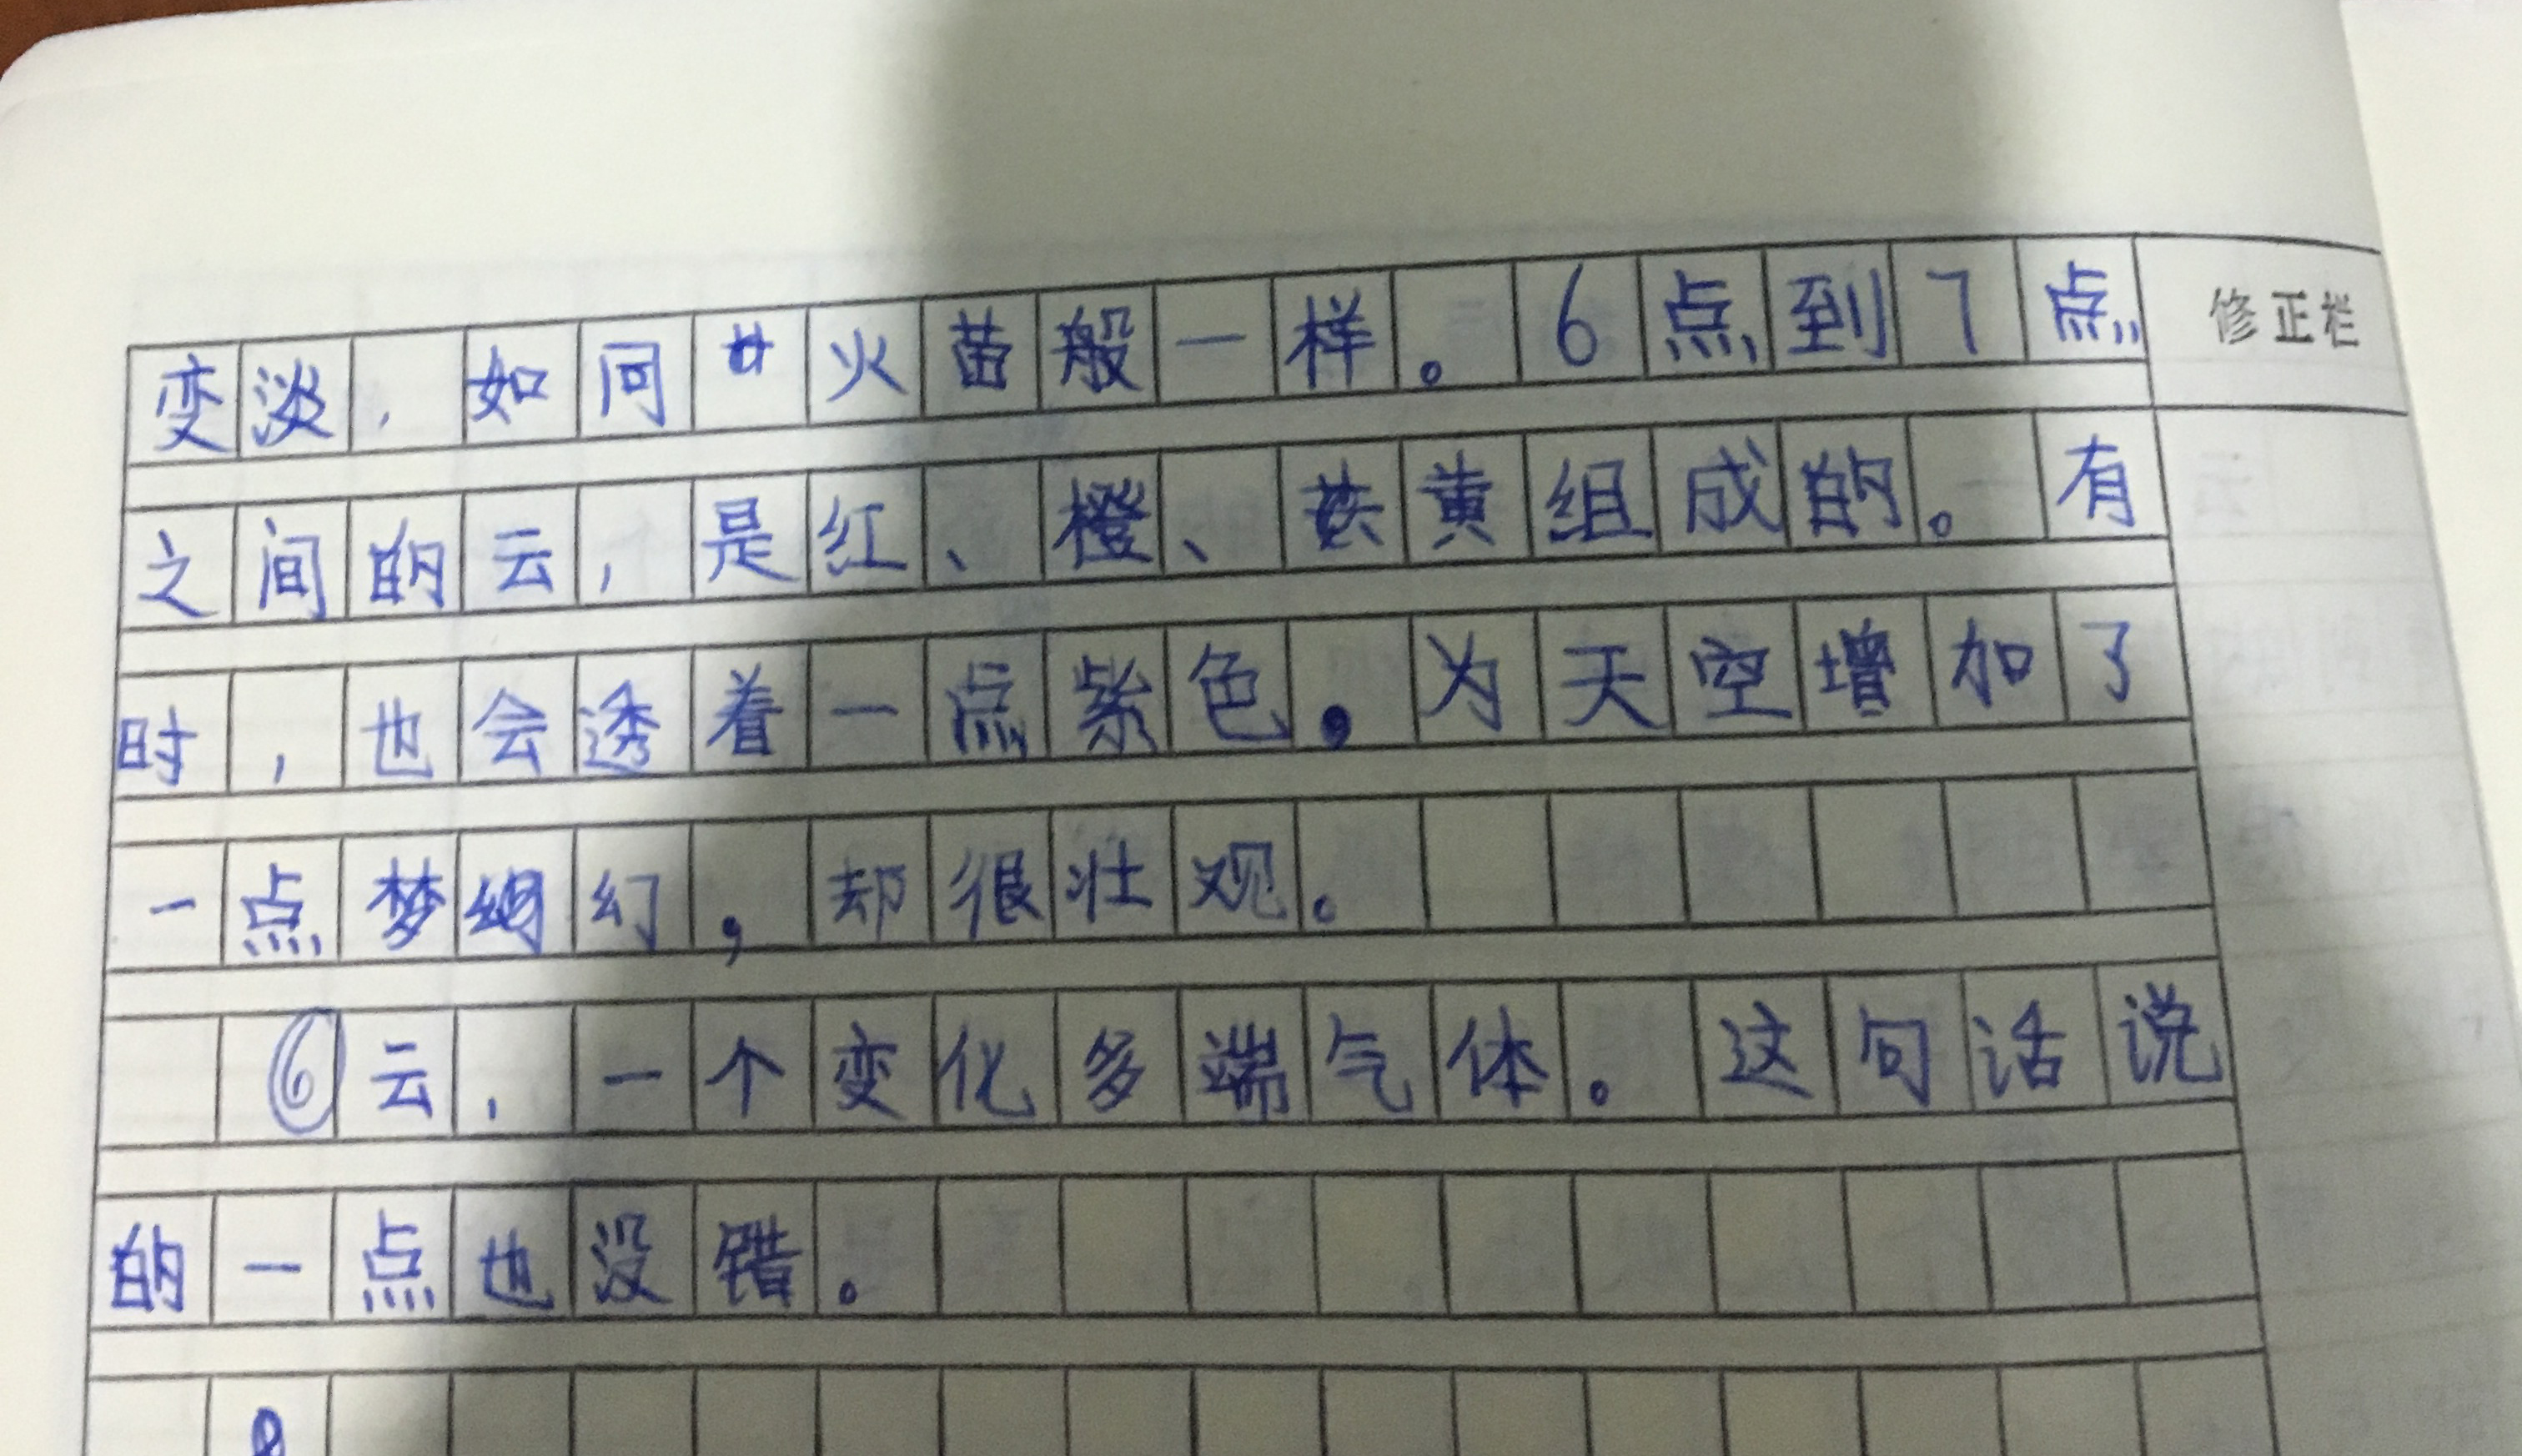 变淡，如同火苗般一样。6点到7点
修正栏
之间的云，是红、橙、黄组成的。有
时，也会透着一点紫色，为天空增加了
一点梦幻，却很壮观。
⑥云，一个变化多端气体。这句话说
的一点也没错。